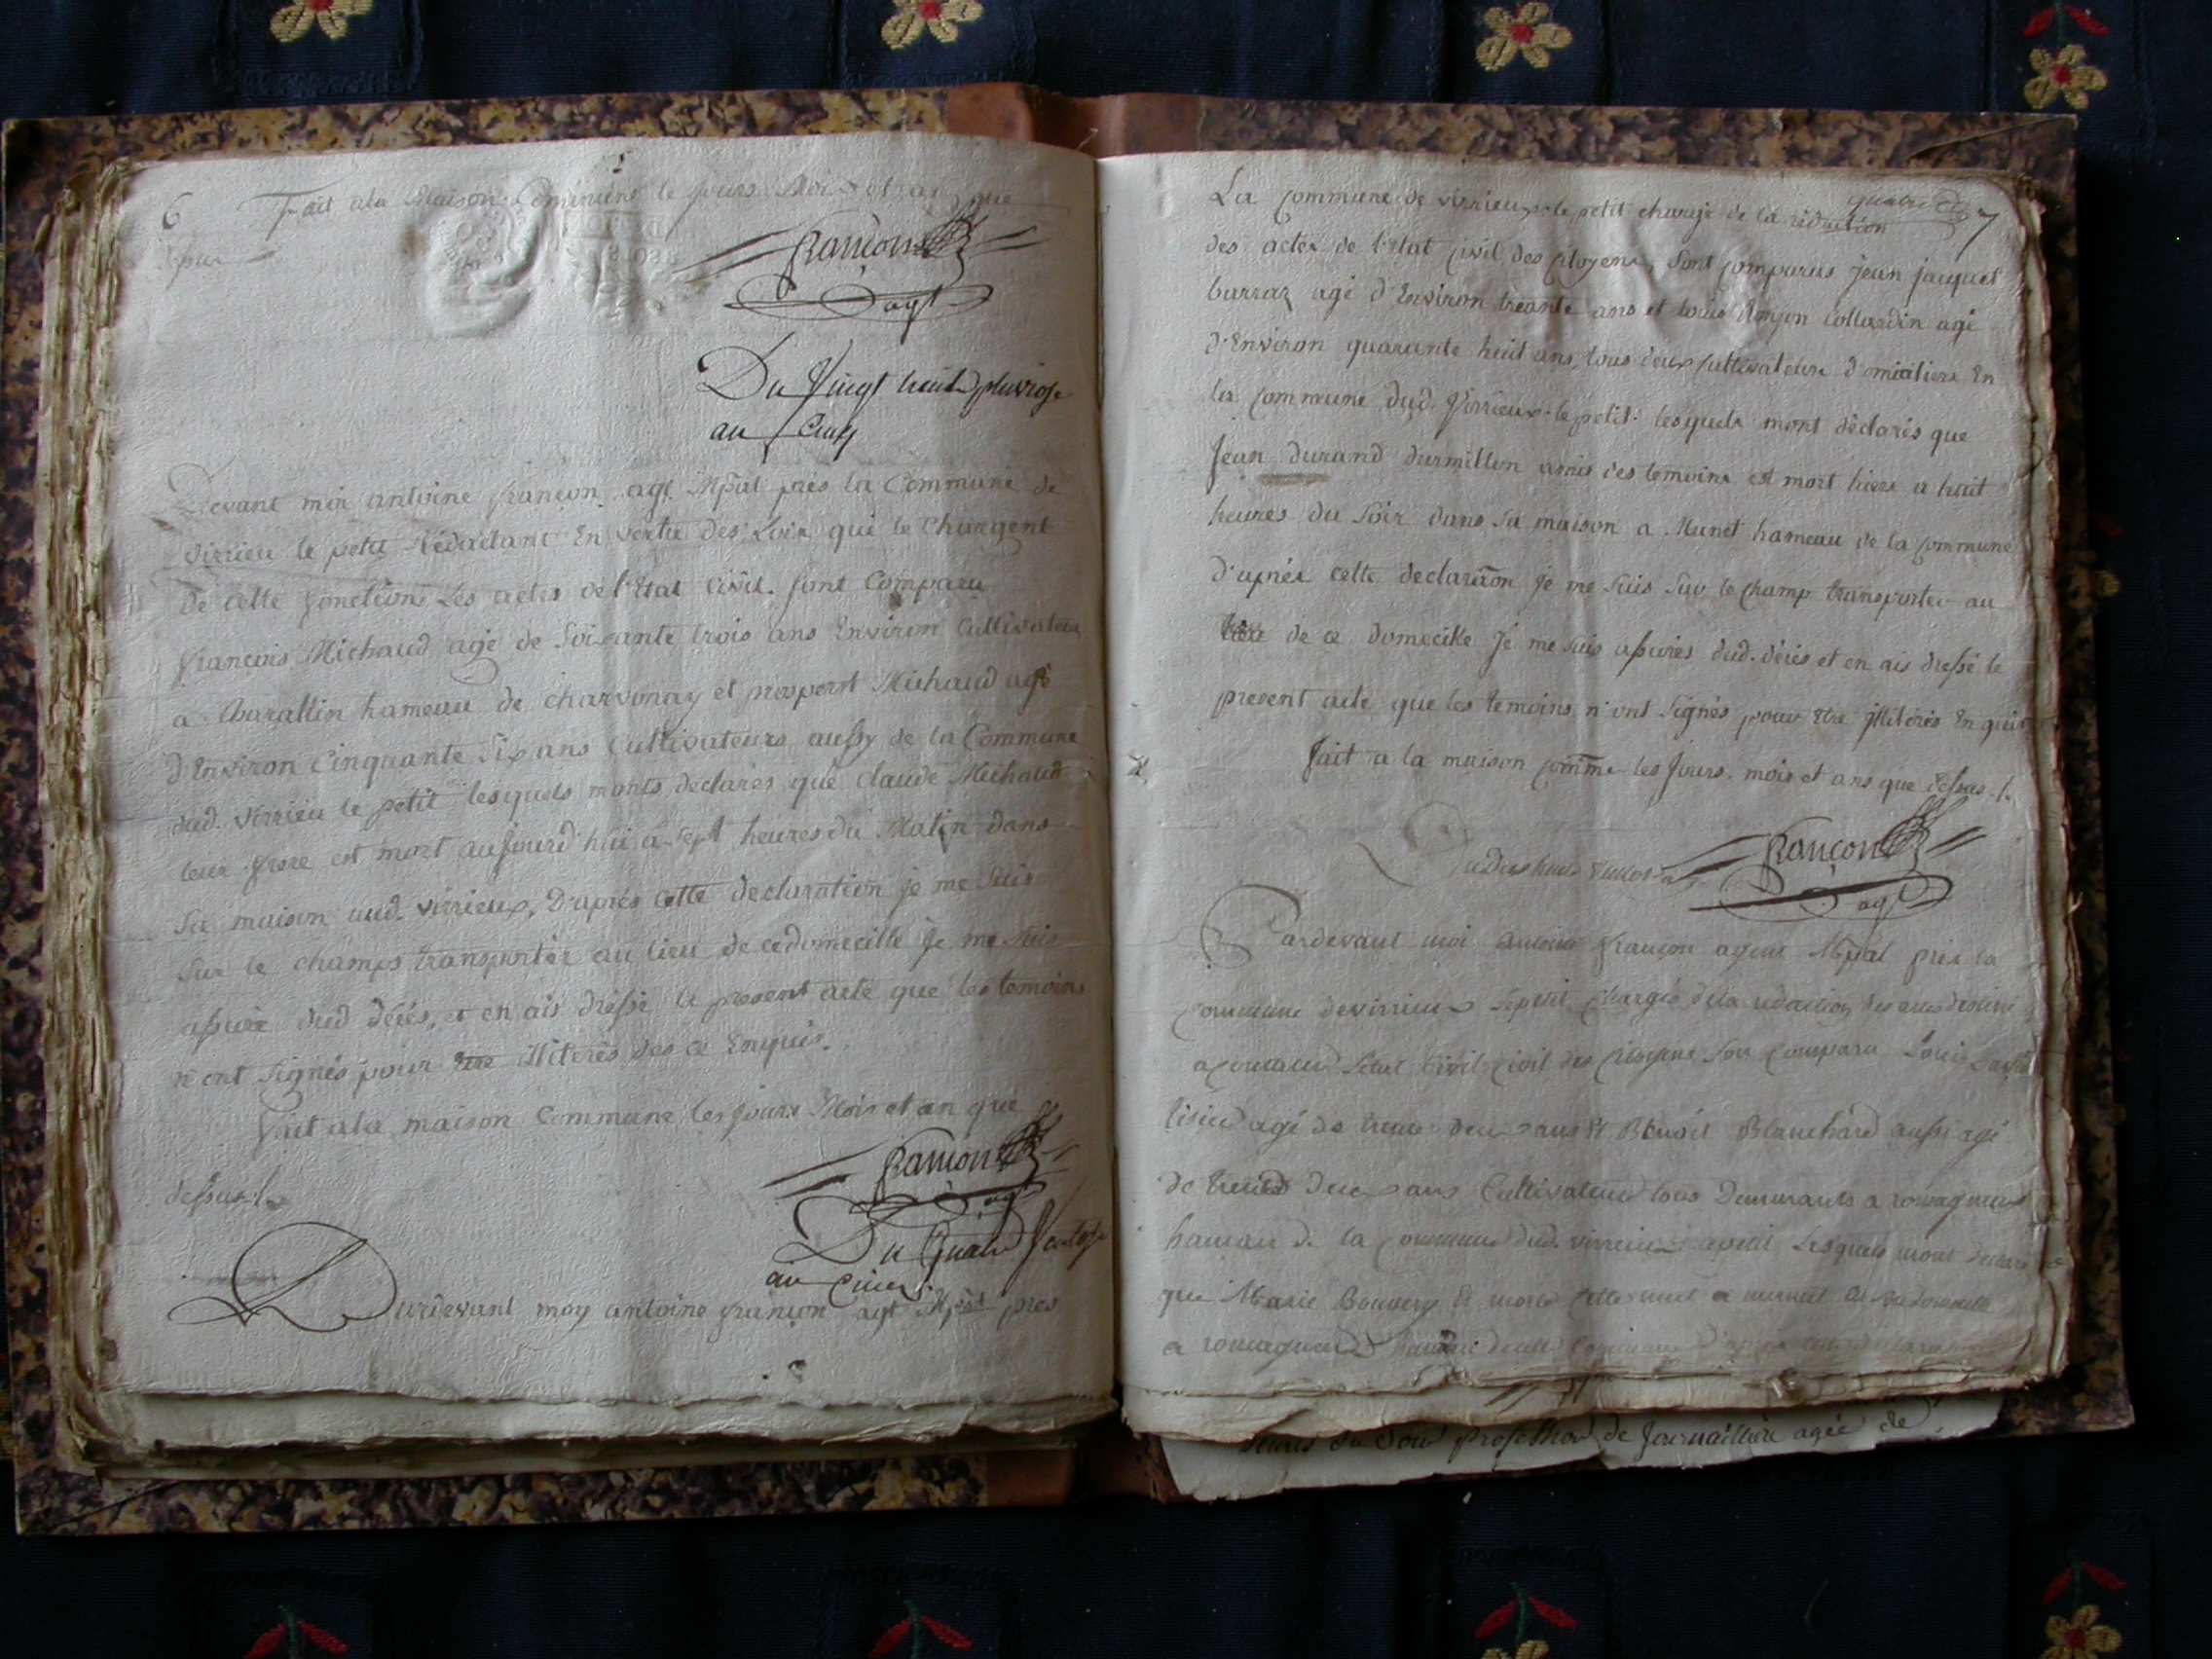 6 Fait a la Maison Commune le jours Mois et an que
françon
agt
Du Vingt huit pluviose
an Cinq
Devant moi antoine françon agt. Mpal près la Commune de
Virrieu le petit Rédactant En vertu des Loix qui le Chargent
De cette fonctions Les actes de l'Etat Civil. sont Comparu
françois Michaud agé de Soixante trois ans Environ Cultivateur
a hameau de charvonay et prospert Michaud agé
D'Environ Cinquante Six ans Cultivateurs aussy de la Commune
dud. Virrieu le petit lesquels monts declarés que claude Michaud
leur frere est mort aujourd'hui a Sept heures du Matin dans
sa maison aud. virrieux, D'aprés cette declaration je me suis
sur le champs transportér au lieu de ce domecille je me suis
assuré dud décés, et en ais dressé le present acte que les temoins
n'ont signés pour être illiterés des ce Enquis.
fait a la maison Commune les jours Mois et an que
dessus /.
françon
agt
Du Quatre Ventose
an Cinq
Pardevant moy antoine françon agt Mpal près
7
La Commune de virrieux le petit chargé de la rédaction
des actes de l'état civil des citoyens, sont comparus jean jacquet
barraz agé d'Environ treante ans et louis collardin agé
d'Environ quarante huit ans, tous deux cultivateurs domiciliers En
la Commune dud. Virrieux-le-petit: lesquels mont déclarés que
Jean durand durmillon amis des temoins est mort hiere a huit
heures du Soir dans sa maison a Munet hameau de la Commune
D'aprés cette declaraõn je me suis sur le champ transporter au
lieu de ce domecille je me suis assurés dud. décés et en ais dressé le
present acte que les temoins n'ont Signés pour être illiterés En quis
fait a la maison comme les Jours. mois et ans que dessus /.
françon
agt
Pardevant moi antoine françon agent Mpal près la
Commune de virrieux le petit Chargés de la redaction des actes
Civil des Citoyens Son Comparu Louis
agé de trente deux ans et Benoit Blanchard aussi agé
de trente deux ans Cultivateurs tous Demeurants a romagnieu
hameau de la Commune dud. virrieux le petit Lesquels mont declaré
que Marie Bouvery et morte cette nuit a minuit
a romagnieu hameau de cette Commune D'après cette declaration
heures du Soir de agée de